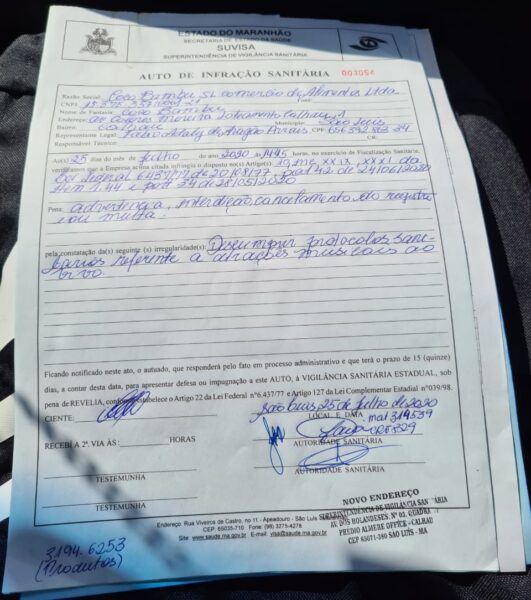 ESTADO DO MARANHÃO
SECRETARIA DE ESTADO DA SAÚDE
SUVISA
SUPERINTENDÊNCIA DE VIGILÂNCIA SANITÁRIA
AUTO DE INFRAÇÃO SANITÁRIA 003054
Razão Social: Coco Bambu SL comercio de Alimentos Ltda
CNPJ: Fone:
Nome de Fantasia: Coco Bambu
Endereço: Av Colares Moreira Loteamento Calhau
Bairro: Calhau Município: São Luis
Representante Legal: de Aragão CPF:
Responsável Técnico: CR:
A(s) 25 dias do mês de Julho do ano 2020 às 1445 horas, no exercício de Fiscalização Sanitária,
verifiquei que a Empresa acima citada infringiu o disposto no(s) Artigo(s): 10, inc XXIX, XXXI da
Lei Federal 6437/77 de 20/08/77, port 42 de 24/06/2020
item 1.44 e port 34 de 28/05/2020
Pena: advertência, interdição, cancelamento do registro
e/ou multa.
pela constatação da(s) seguinte (s) irregularidade(s): Descumprir protocolos sani-
tários referente a atrações musicais ao
vivo.
Ficando notificado neste ato, o autuado, que responderá pelo fato em processo administrativo e que terá o prazo de 15 (quinze)
dias, a contar desta data, para apresentar defesa ou impugnação a este AUTO, à VIGILÂNCIA SANITÁRIA ESTADUAL, sob
pena de REVELIA, conforme estabelece o Artigo 22 da Lei Federal nº 6.437/77 e Artigo 127 da Lei Complementar Estadial nº 039/98.
CIENTE:
São Luis, 25 de Julho de 2020
LOCAL E DATA
mat 314539
RECEBÍ A 2ª VIA ÀS: HORAS
AUTORIDADE SANITÁRIA
TESTEMUNHA
AUTORIDADE SANITÁRIA
TESTEMUNHA
NOVO ENDEREÇO
SUPERINTENDÊNCIA DE VIGILÂNCIA SANITÁRIA
AV. DOS HOLANDESES, Nº 03, QUADRA
PRÉDIO ALMERE OFFICE - CALHAU
CEP 65071-380 SÃO LUÍS - MA
Endereço: Rua Viveiros de Castro, no 11 - Apeadouro - São Luís
CEP 65035-710 Fone: (98) 3275-4278
Site: www.saude.ma.gov.br E-mail: visa@saude.ma.gov.br
3194.6253
(Produtos)